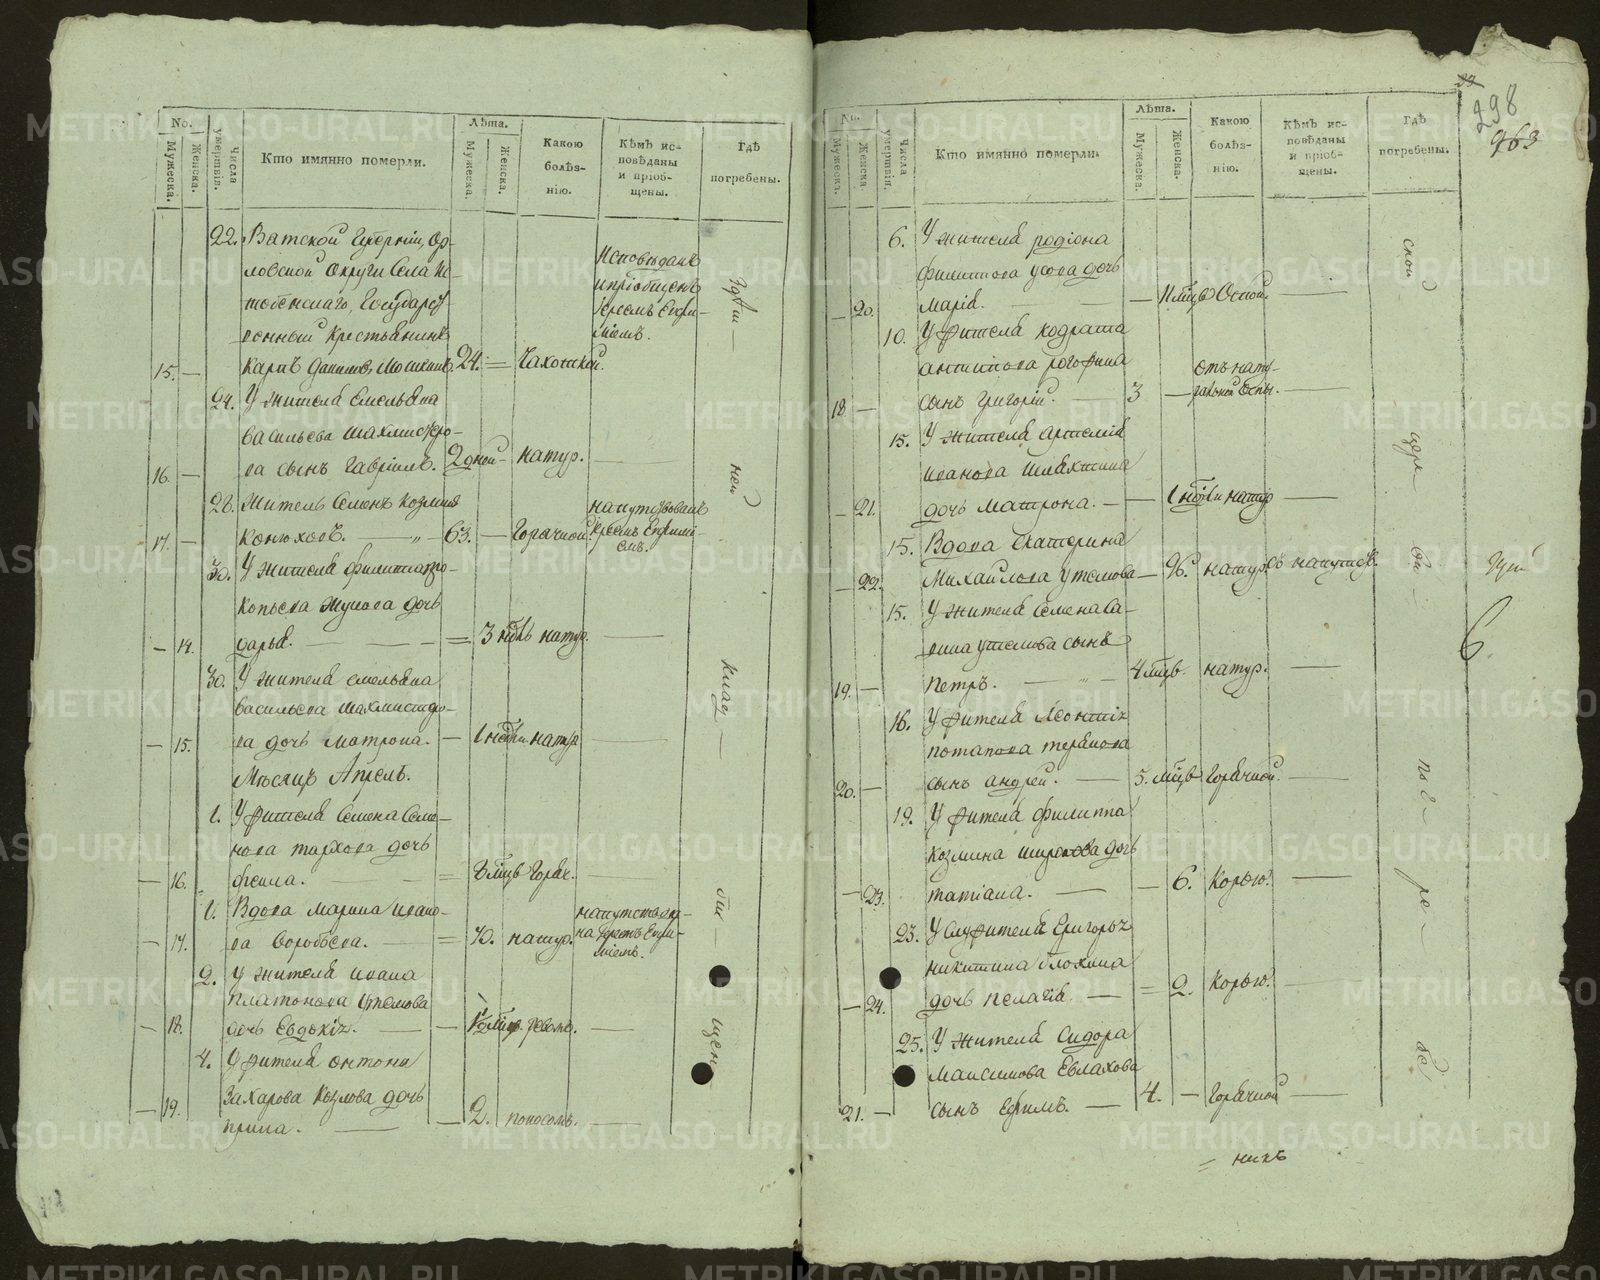 No.
Мужеска.
Женска.
Числа умертвія.
Кто имянно померли.
Лѣта.
Мужеска.
Женска.
Какою болѣз-
нію.
Кѣмъ ис-
повѣданы
и пріоб-
щены.
Гдѣ
погребены.
22. Вятской Губерніи, Ор-
ловской округи села
Государст
венный крестьянинъ
15. — Карпъ Даниловъ 24. = Чахоткой.
Исповѣданъ
и пріобщенъ
Іереемъ Евфи-
міемъ.
24. У жителя Емельяна
Васильева Шахмистро-
16. — ва сынъ Гавріилъ. 2 дней — натур. —
28. Житель Семенъ Козмин
17. — Конюховъ. — 63. — Горячкой.
напутствованъ
Іереемъ Евфимі-
емъ.
30. У жителя Филиппа Про-
копьева Жукова дочь
— 14. Дарья. — = 3 нѣдѣль натур. —
30. У жителя Емельяна
Васильева Шахмистро-
— 15. ва дочь Матрона. — 1 нѣдѣли натур. —
Мѣсяцъ Апрель.
1. У жителя Семена Семе-
нова Тархова дочь
— 16. Фекла. — = 8 мцв Горяч. —
1. Вдова Марина Ивано-
— 17. ва Воробьева. — = 70. натур.
напутствова-
на Іереемъ Евфи-
міемъ.
2. У жителя Ивана
Платонова Утемова
— 18. дочь Евдокія. — — 1½ мцв. —
4. У жителя Антона
Захарова Козлова дочь
— 19. Ирина. — — 2. поносомъ. —
Здѣш —
ней
клад —
би —
щен
No.
Мужеска.
Женска.
Числа умертвія.
Кто имянно померли.
Лѣта.
Мужеска.
Женска.
Какою
болѣз-
нію.
Кѣмъ ис-
повѣданы
и пріоб-
щены.
Гдѣ
погребены.
298
963
6. У жителя Родіона
Филиппова Усова дочь
— 20. Марія. — — 11 мцв Оспой. —
10. У жителя Кодрата
Антипова Рогожина
18. — сынъ Григорій. — 3 —
отъ нату-
ральной Оспы. —
15. У жителя Артемія
Иванова Шляхтина
— 21. дочь Матрона. — — 1 нѣдѣли натур —
15. Вдова Екатерина
— 22. Михайлова Утемова — 96. натур.
15. У жителя Семена Са-
вина Утемова сынъ
19. — Петръ. — 4 мцв. натур. —
16. У жителя Леонтія
Потапова Терѣнова
20. — сынъ Андрей. — 5. мцв Горячкой. —
19. У жителя Филиппа
Козмина Широкова дочь
— 23. Татіана. — — 6. Корью. —
23. У служителя Григорья
Никитина Блохина
— 24. дочь Пелагія. — = 2. Корью. —
25. У жителя Сидора
Максимова Евлахова
21. — сынъ Ефимъ. — 4. — Горячкой —
ской
цер
ви
по
ре
б
6
= никъ
METRIKI.GASO-URAL.RU